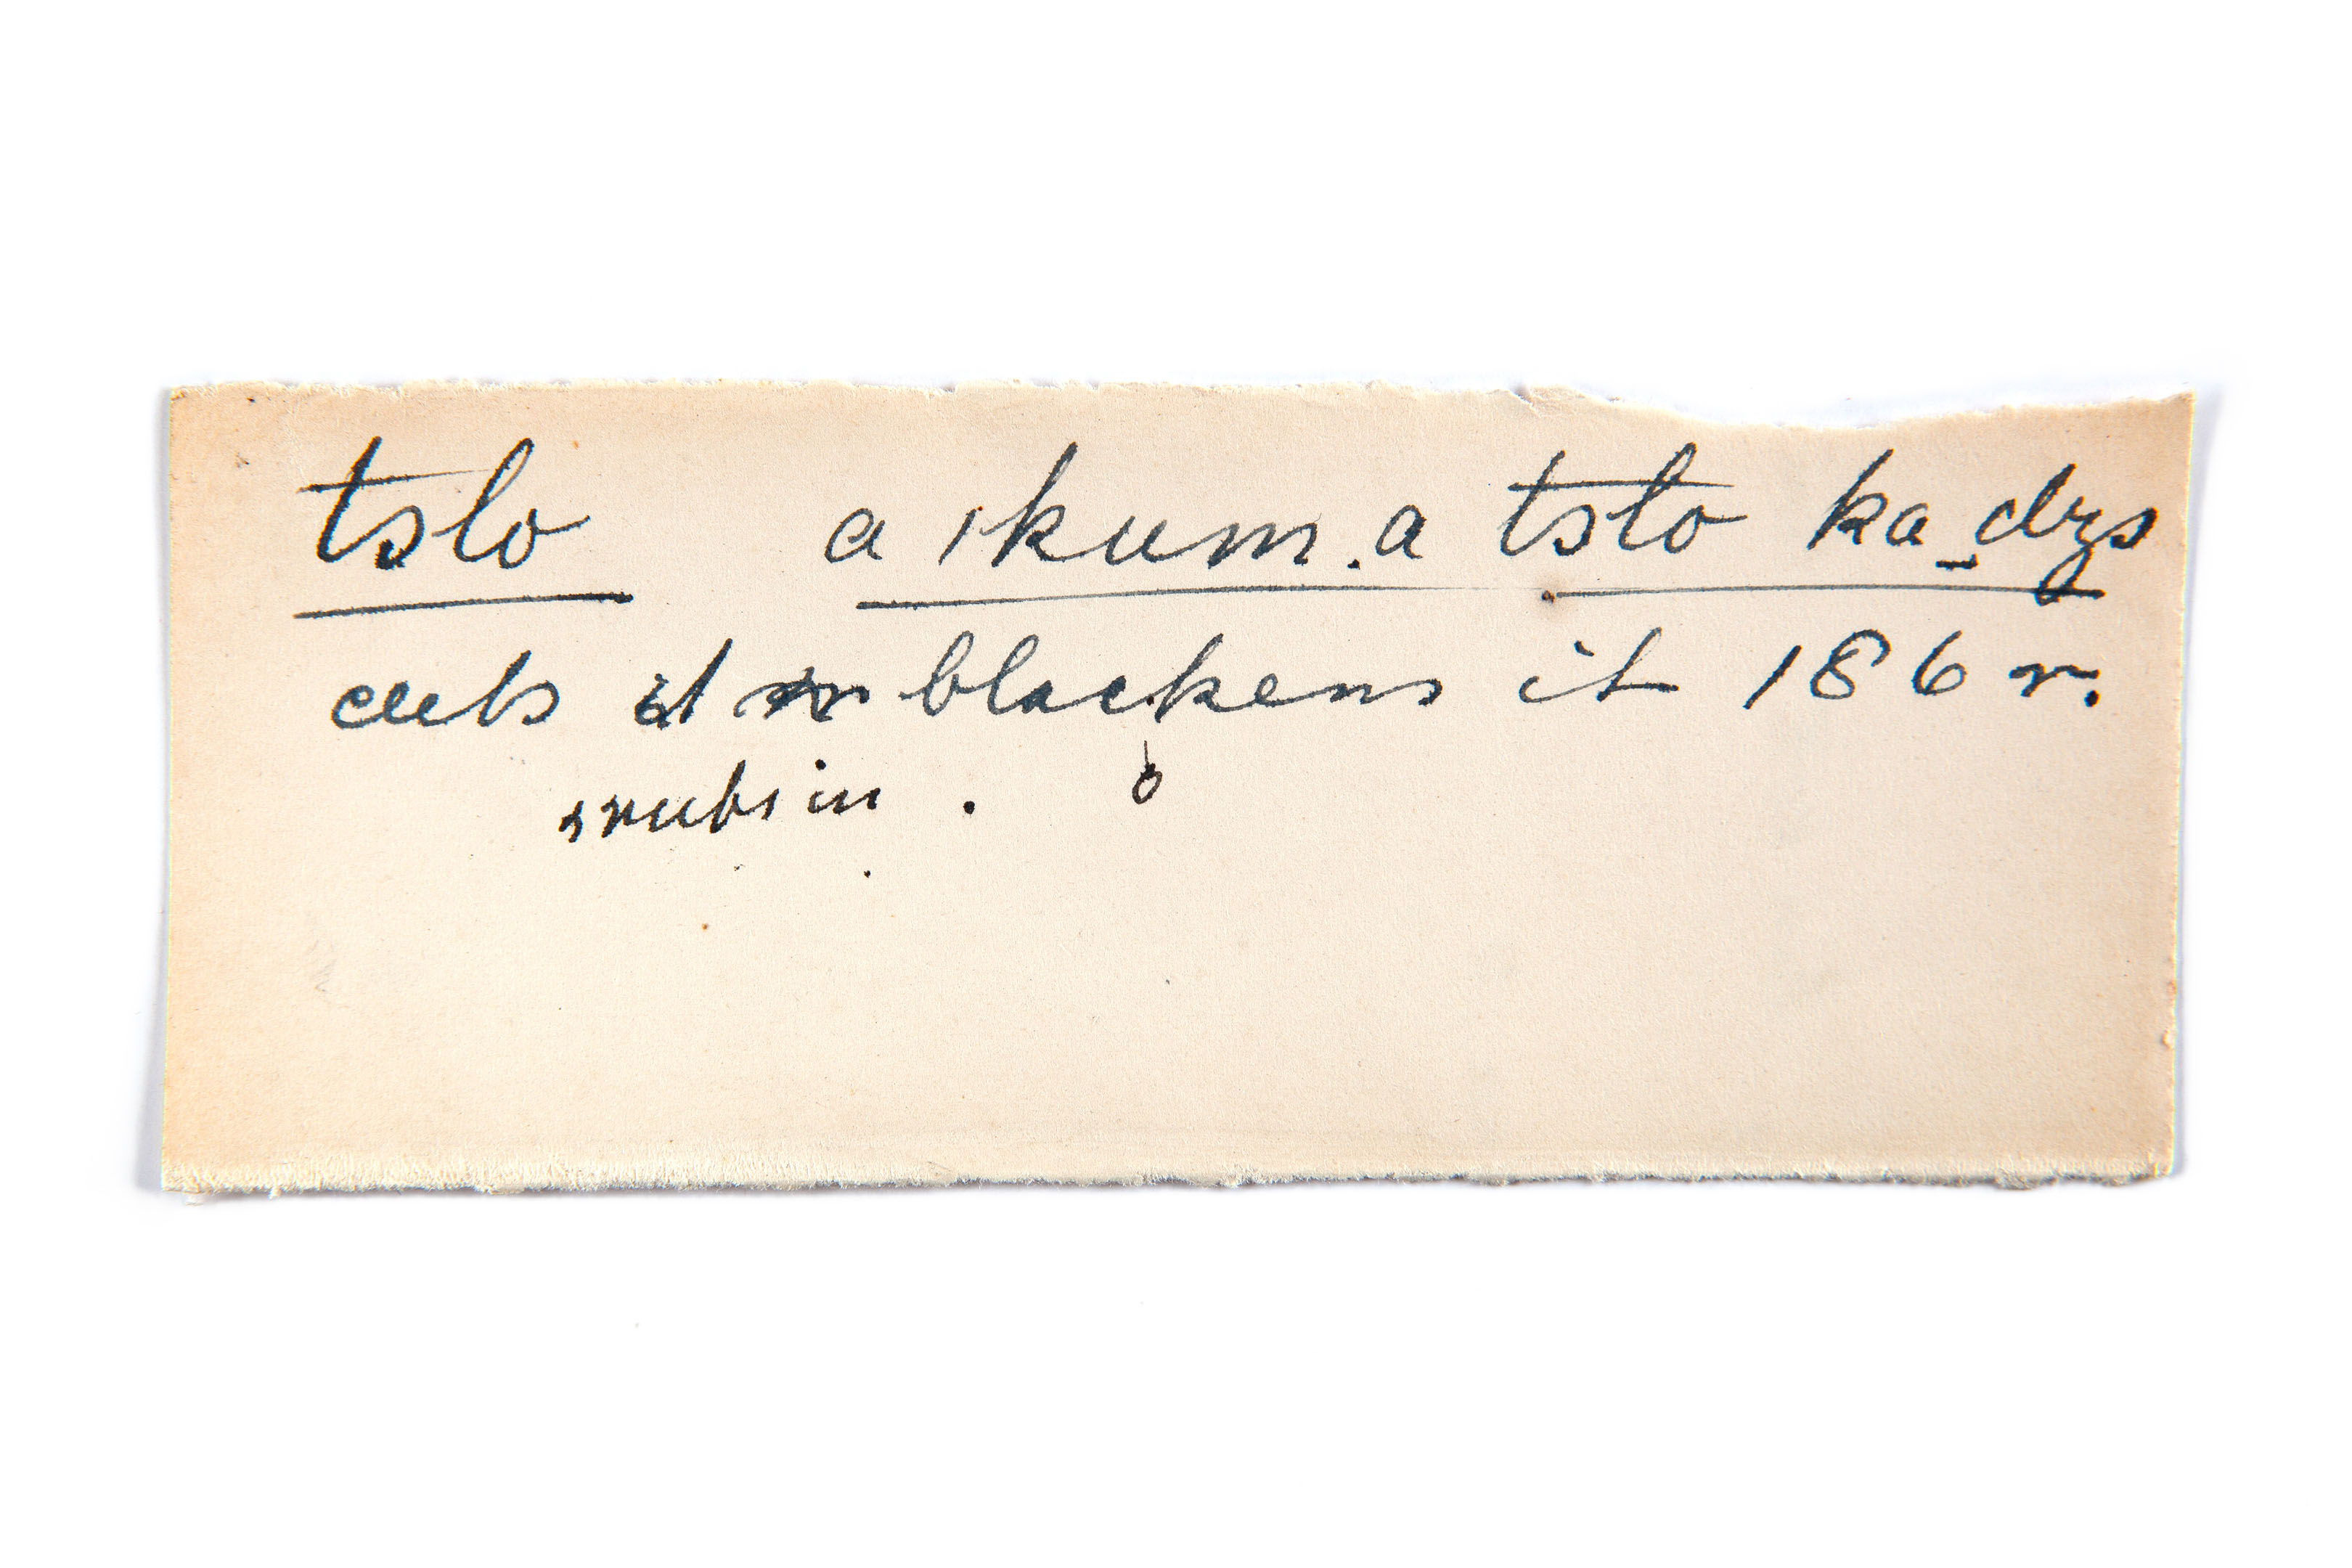 tslo a ıkum.a tslo ka_dzs
cuts it blackens it 186 r.
rubs in .